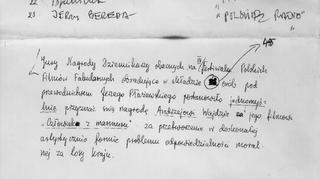 22
23 JERZY BEREDA
"POLSKIE RADIO"
Jury Nagrody Dziennikarzy obecnych na IV Festiwalu Polskich
Filmów Fabularnych obradujące w składzie osób pod
przewodnictwem Jerzego Płażewskiego postanowiło jednomyśl-
nie przyznać swą nagrodę Andrzejowi Wajdzie za jego filmowi
„Człowiek z marmuru" za przetworzenie w doskonałej
artystycznie formie problemu odpowiedzialności moral-
nej za losy kraju.